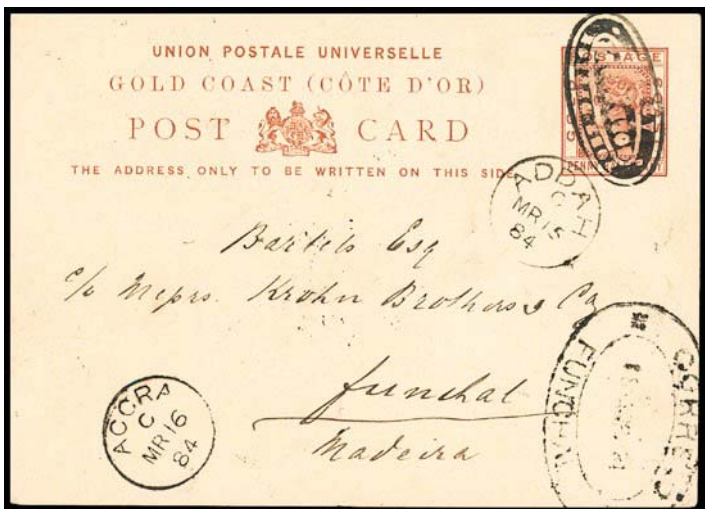 UNION POSTALE UNIVERSELLE
GOLD COAST (CÔTE D'OR)
POST CARD
THE ADDRESS ONLY TO BE WRITTEN ON THIS SIDE
POSTAGE
PENNY
ADDAH
C
MR 15
84
Bartels Esq
c/o Messrs. Krohn Brothers & Co
Funchal
Madeira
ACCRA
C
MR 16
84
CORREIO
FUNCHAL